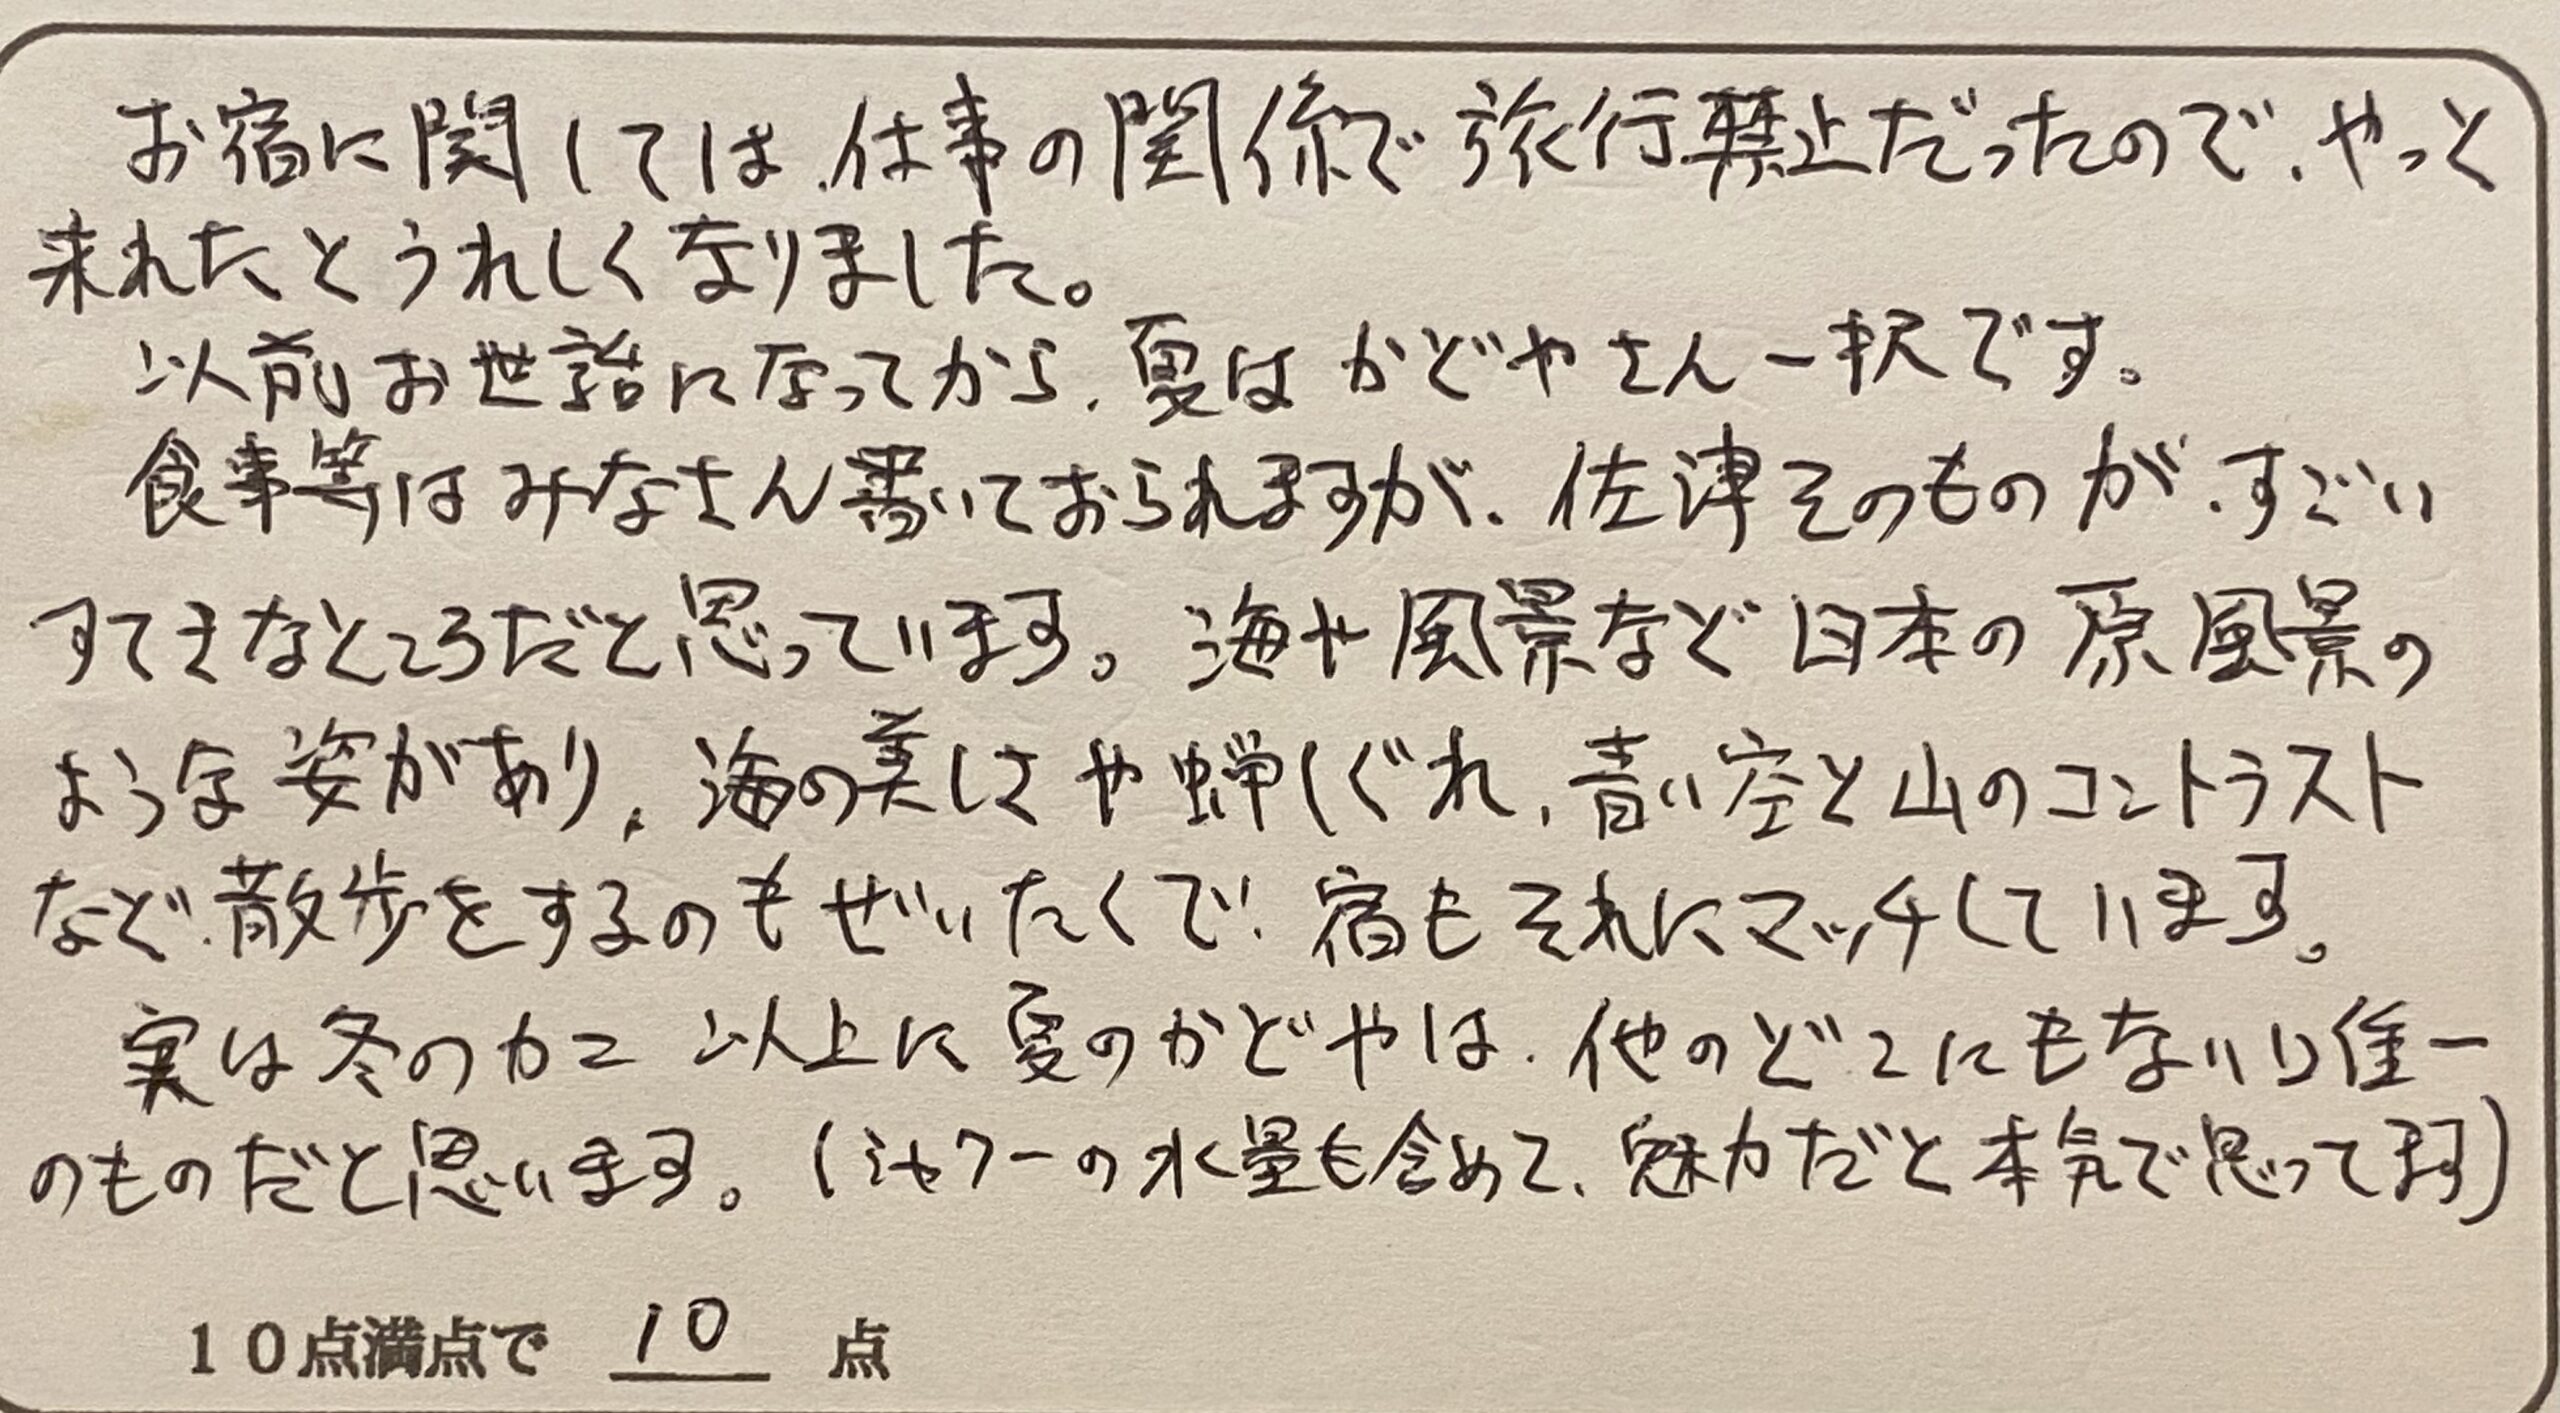 お宿に関しては、仕事の関係で旅行禁止だったので、やっと
来れたとうれしくなりました。
以前お世話になってから、夏はかどやさん一択です。
食事等はみなさん書いておられますが、佐津そのものが、すごい
すてきなところだと思っています。海や風景など日本の原風景の
ような姿があり、海の美しさや蝉しぐれ、青い空と山のコントラスト
など、散歩をするのもぜいたくで、宿もそれにマッチしています。
実は冬のカニ以上に夏のかどやは、他のどこにもない唯一
のものだと思います。(シャワーの水量も含めて、魅力だと本気で思ってます)
10点満点で 10 点